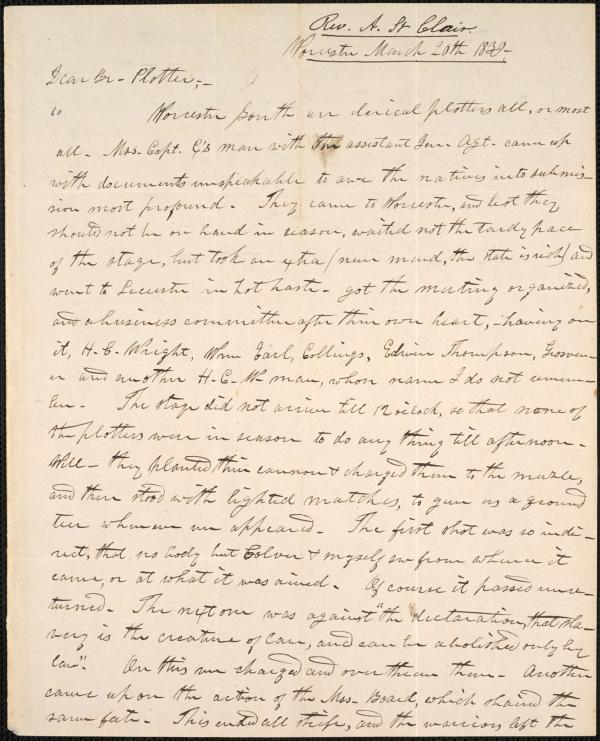 Rev. A. St Clair.
Worcester March 20th 1839,
Dear Br- Plotter,-
Worcester South are clerical plotters all, or most
all. Mrs. Capt. C's man with the assistant Gen. Agt. came up
with documents unspeakable to awe the natives into submis-
sion most profound. They came to Worcester, and lest they
should not be on hand in season, waited not the tardy pace
of the stage, but took an extra (never mind, the state is rich) and
went to Leicester in hot haste - got the meeting organized,
and a business committee after their own heart, - having on
it, H. C. Wright, Wm Earl, Collings, Edwin Thompson, Grosven-
er and another H. C. W- man, whose name I do not remem-
ber. The stage did not arrive till 12 o'clock, so that none of
the plotters were in season to do any thing till afternoon.
Well - they planted their cannon & charged them to the muzzle,
and then stood with lighted matches, to give us a ground
tier whenever we appeared. The first shot was so indi-
rect, that no body but Colver & myself saw from whence it
came, or at what it was aimed. Of course it passed unre-
turned. The next one was against "the declaration, that sla-
very is the creature of law, and can be abolished only by
law". On this we charged and overthrew them. Another
came upon the action of the Mss. Board, which shared the
same fate. This ended all strife, and the warriors left the